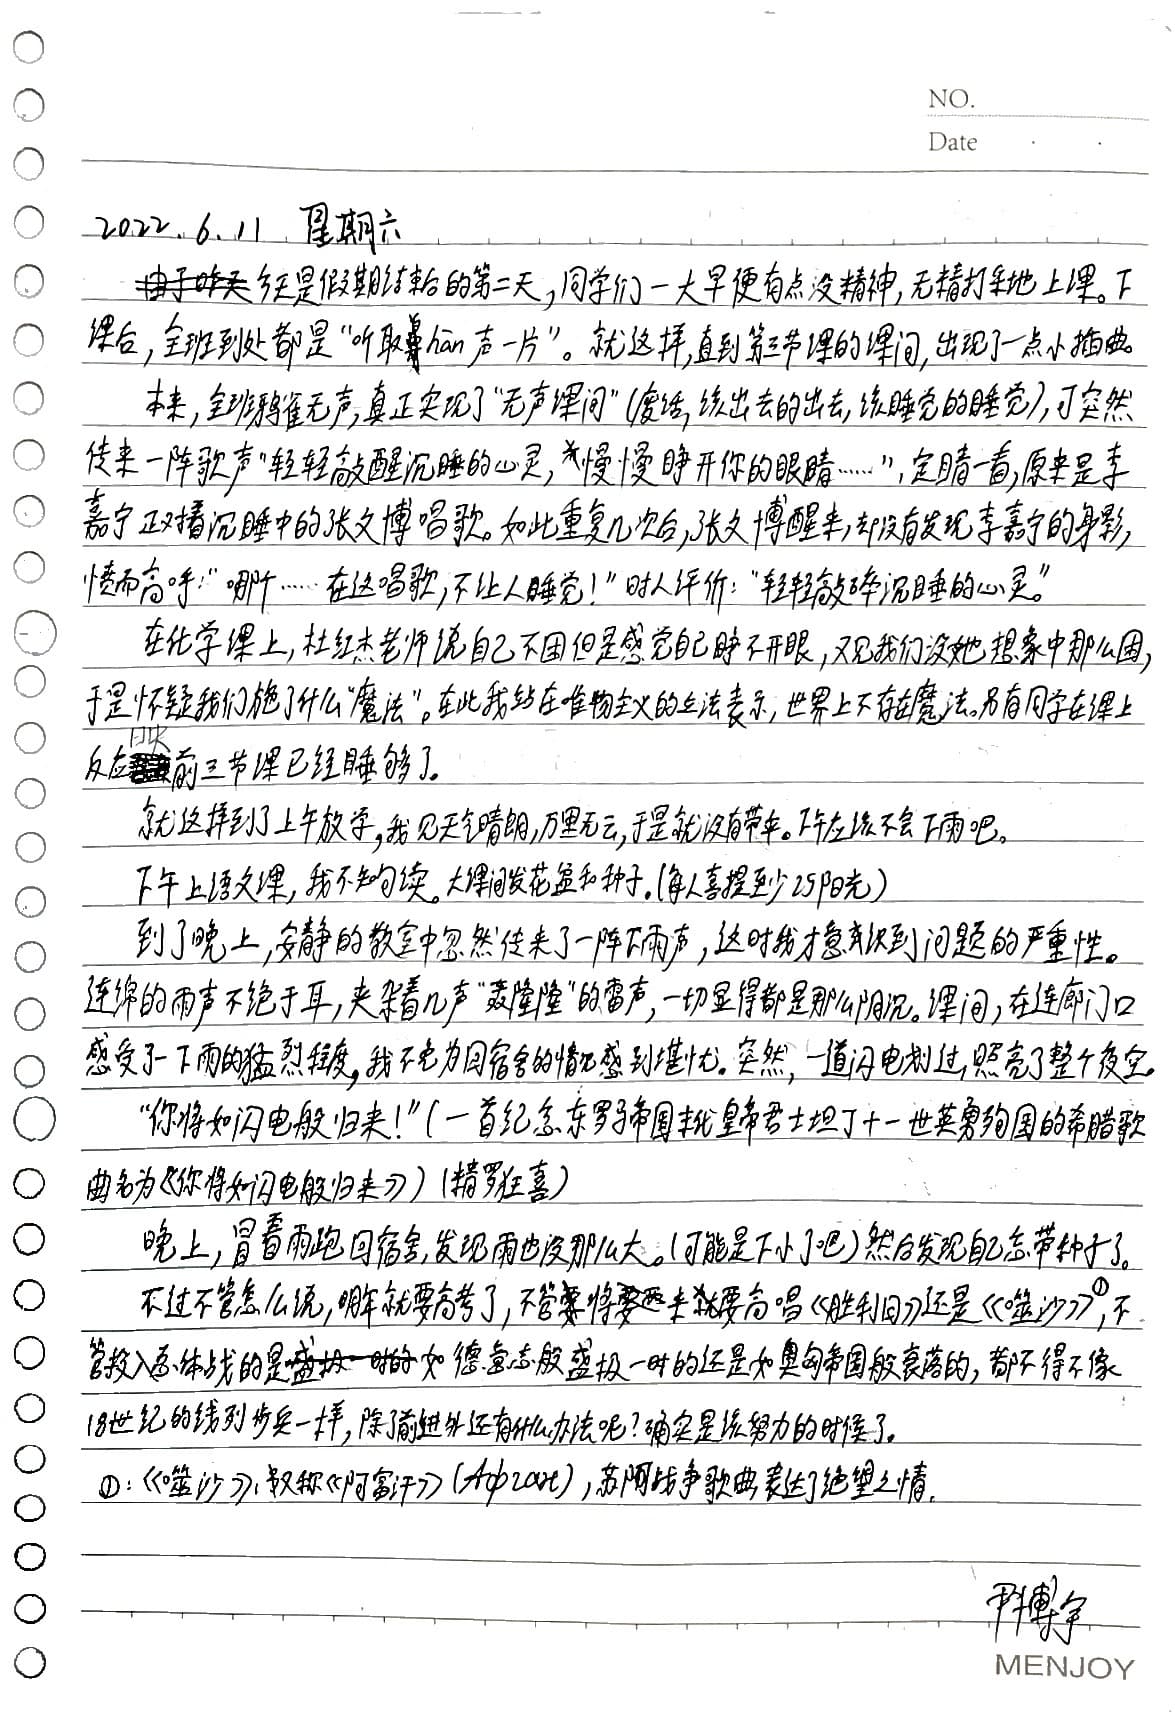 NO.
Date
2022.6.11 星期六
由于昨天今天是假期结束后的第二天,同学们一大早便有点没精神,无精打采地上课。下
课后,全班到处都是“听取鼻hān声一片”。就这样,直到第三节课的课间,出现了一点小插曲。
本来,全班鸦雀无声,真正实现了“无声课间”(废话,该出去的出去,该睡觉的睡觉),可突然
传来一阵歌声“轻轻敲醒沉睡的心灵,慢慢睁开你的眼睛……”,定睛一看,原来是李
嘉宁正对着沉睡中的张文博唱歌。如此重复几次后,张文博醒来,却没有发现李嘉宁的身影,
愤而高呼:“哪个……在这唱歌,不让人睡觉!”时人评价:“轻轻敲碎沉睡的心灵。”
在化学课上,杜红杰老师说自己不困但是感觉自己睁不开眼,又见我们没她想象中那么困,
于是怀疑我们施了什么“魔法”。在此我站在唯物主义的立法表示,世界上不存在魔法。另有同学在课上
反应映前三节课已经睡够了。
就这样到了上午放学,我见天气晴朗,万里无云,于是就没有带伞。下午应该不会下雨吧。
下午上语文课,我不知句读。大课间发花盆和种子。(每人喜提至少25阳光)
到了晚上,安静的教室中忽然传来了一阵下雨声,这时我才意识到问题的严重性。
连绵的雨声不绝于耳,夹杂着几声“轰隆隆”的雷声,一切显得都是那么阴沉。课间,在连廊门口
感受了一下雨的猛烈程度,我不免为回宿舍的情况感到堪忧。突然,一道闪电划过,照亮了整个夜空。
“你将如闪电般归来!”(一首纪念东罗马帝国末代皇帝君士坦丁十一世英勇殉国的希腊歌
曲名为《你将如闪电般归来》)(精罗狂喜)
晚上,冒着雨跑回宿舍,发现雨也没那么大。(可能是下小了吧)然后发现自己忘带种子了。
不过不管怎么说,明年就要高考了,不管将来要高唱《胜利日》还是《噬沙》①,不
管投入总体战的是盛极一时的如德意志般盛极一时的还是如奥匈帝国般衰落的,都不得不像
18世纪的线列步兵一样,除了前进外还有什么办法呢?确实是该努力的时候了。
①:《噬沙》,又称《阿富汗》(Афган),苏阿战争歌曲,表达了绝望之情。
尹博宇
MENJOY